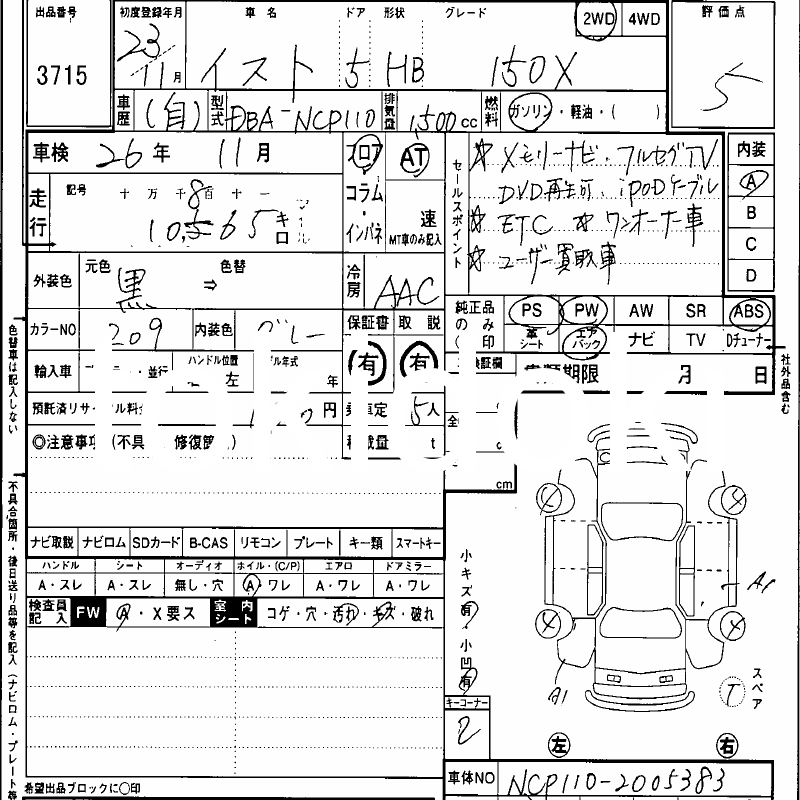 出品番号 初度登録年月 車名 ドア 形状 グレード 2WD 4WD 評価点
3715 23/11月 イスト 5 HB 150X 5
車歴 (自) 型式 DBA-NCP110 排気量 1,500cc 燃料 ガソリン・軽油・( )
車検 26年 11月 フロア AT セールスポイント ☆メモリーナビ・フルセグTV 内装
DVD再生可、iPODケーブル A
走行 記号 十万千百十一 コラム・インパネ 速 MT車のみ記入 ☆ETC ☆ワンオーナー車 B
8 10,565 キロ ☆ユーザー買取車 C
D
外装色 元色 黒 ⇒ 色替 冷房 AAC
純正品のみ印 PS PW AW SR ABS
カラーNO 209 内装色 グレー 保証書 取説 革シート エアバック ナビ TV Dチューナー
輸入車 ・並行 ハンドル位置 左 年式 年 有 有 検証欄 期限 月 日
預託済リサイクル料 円 定 5人
◎注意事項 (不具 修復箇 ) 量 t
cm
ナビ取説 ナビロム SDカード B-CAS リモコン プレート キー類 スマートキー
ハンドル シート オーディオ ホイル・(C/P) エアロ ドアミラー
A・スレ A・スレ 無し・穴 A ワレ A・ワレ A・ワレ
検査員記入 FW A・X要ス 室内シート コゲ・穴・汚れ・キズ・破れ
小キズ有・小凹有
A1
A1
スペア T
キーコーナー
2
左 右
車体NO NCP110-2005383
希望出品ブロックに○印
色替車は記入しない
不具合箇所・後日送り品等を記入(ナビロム・プレート等
社外品含む